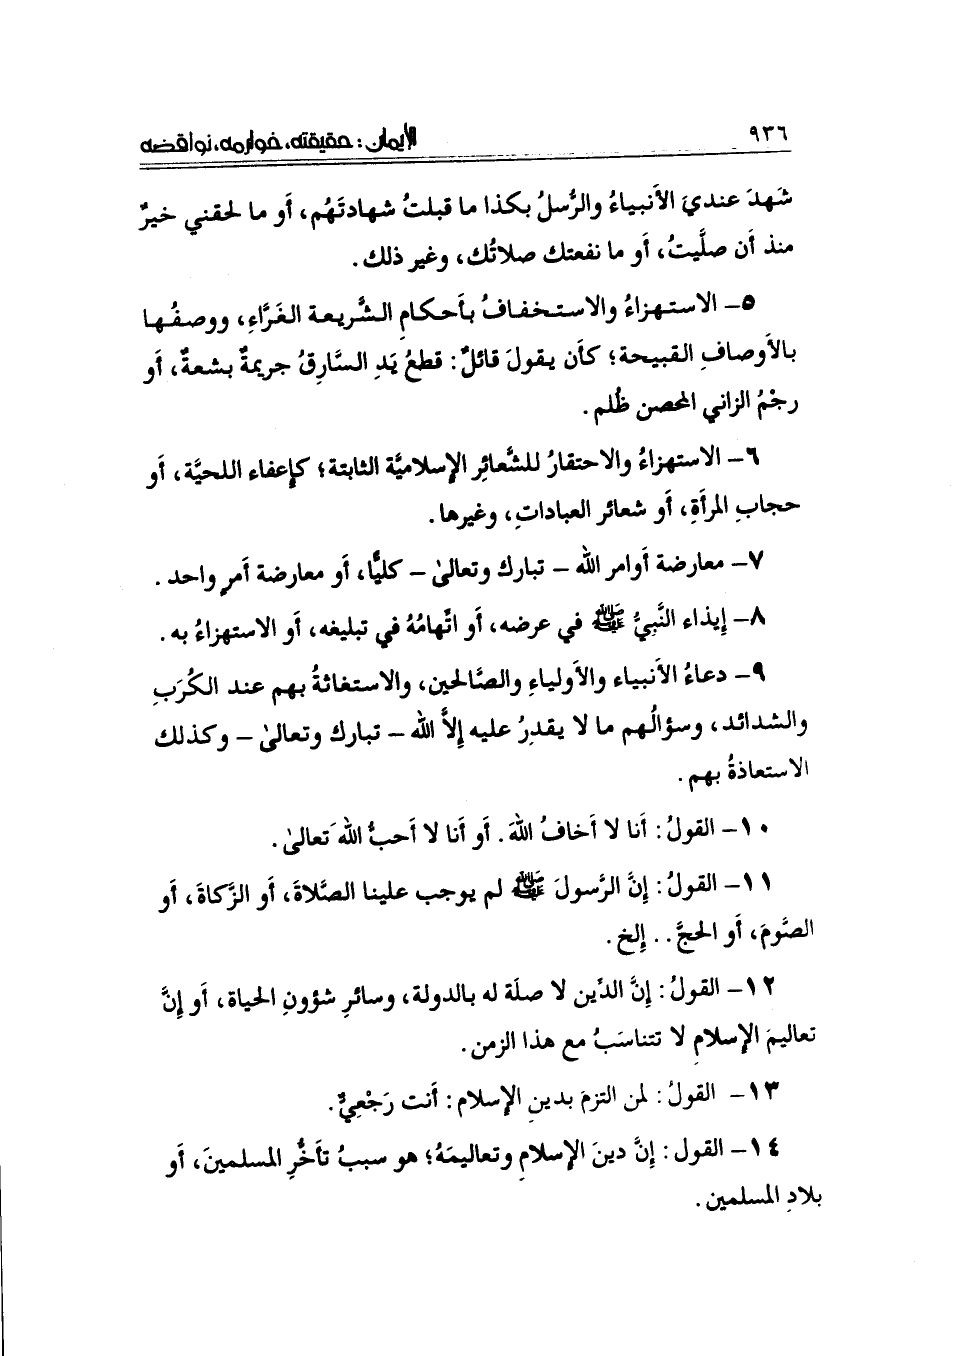 ٩٣٦
الإيمان : حقيقته، خوارمه، نواقضه
شَهدَ عنديَ الأَنبياءُ والرُّسلُ بكذا ما قبلتُ شهادتَهُم، أَو ما لحقني خيرٌ
منذ أن صلَّيتُ، أَو ما نفعتك صلاتُك، وغير ذلك .
٥ – الاستهزاءُ والاستخفافُ بأحكامِ الشَّريعة الغَرَّاءِ، ووصفُها
بالأَوصافِ القبيحة؛ كأن يقولَ قائلٌ : قطعُ يَدِ السَّارقِ جريمةٌ بشعةٌ، أَو
رجْمُ الزاني المحصن ظُلم .
٦ – الاستهزاءُ والاحتقارُ للشَّعائرِ الإسلاميَّة الثابتة؛ كإعفاء اللحيَّة، أَو
حجابِ المرأَةِ، أَو شعائر العباداتِ، وغيرها .
٧ – معارضة أوامر الله – تبارك وتعالىٰ – كليًّا، أَو معارضة أَمرٍ واحد .
٨ – إيذاء النَّبيِّ ﷺ في عرضه، أَو اتِّهامُهُ في تبليغه، أَو الاستهزاءُ به .
٩ – دعاءُ الأَنبياء والأَولياءِ والصَّالحين، والاستغاثةُ بهم عند الكُرَبِ
والشدائد، وسؤالُهم ما لا يقدرُ عليه إلاَّ الله – تبارك وتعالىٰ – وكذلك
الاستعاذةُ بهم .
١٠ – القولُ : أَنا لا أَخافُ اللهَ . أَو أَنا لا أَحبُّ اللهَ تعالىٰ .
١١ – القولُ : إنَّ الرَّسولَ ﷺ لم يوجب علينا الصَّلاةَ، أَو الزَّكاةَ، أَو
الصَّومَ، أَو الحجَّ . . إلخ .
١٢ – القولُ : إنَّ الدِّين لا صلَة له بالدولة، وسائرِ شؤونِ الحياة، أَو إنَّ
تعاليمَ الإسلامِ لا تتناسَبُ مع هذا الزمن .
١٣ – القولُ : لمن التزمَ بدينِ الإسلام : أَنت رَجْعِيٌّ .
١٤ – القول : إنَّ دينَ الإسلامِ وتعاليمَهُ؛ هو سببُ تأخُّرِ المسلمينَ، أَو
بلادِ المسلمين .